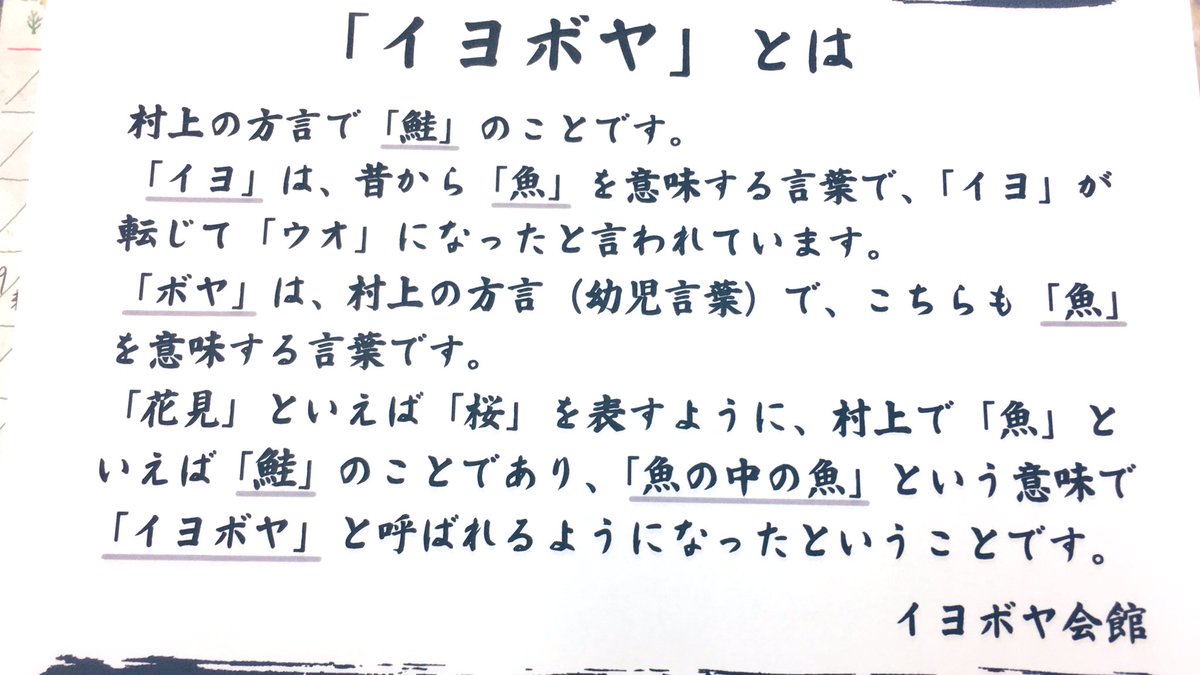 「イヨボヤ」とは
村上の方言で「鮭」のことです。
「イヨ」は、昔から「魚」を意味する言葉で、「イヨ」が
転じて「ウオ」になったと言われています。
「ボヤ」は、村上の方言（幼児言葉）で、こちらも「魚」
を意味する言葉です。
「花見」といえば「桜」を表すように、村上で「魚」と
いえば「鮭」のことであり、「魚の中の魚」という意味で
「イヨボヤ」と呼ばれるようになったということです。
イヨボヤ会館